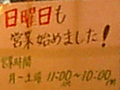 日曜日も
営業始めました!
営業時間
月〜土曜 11:00〜10:00